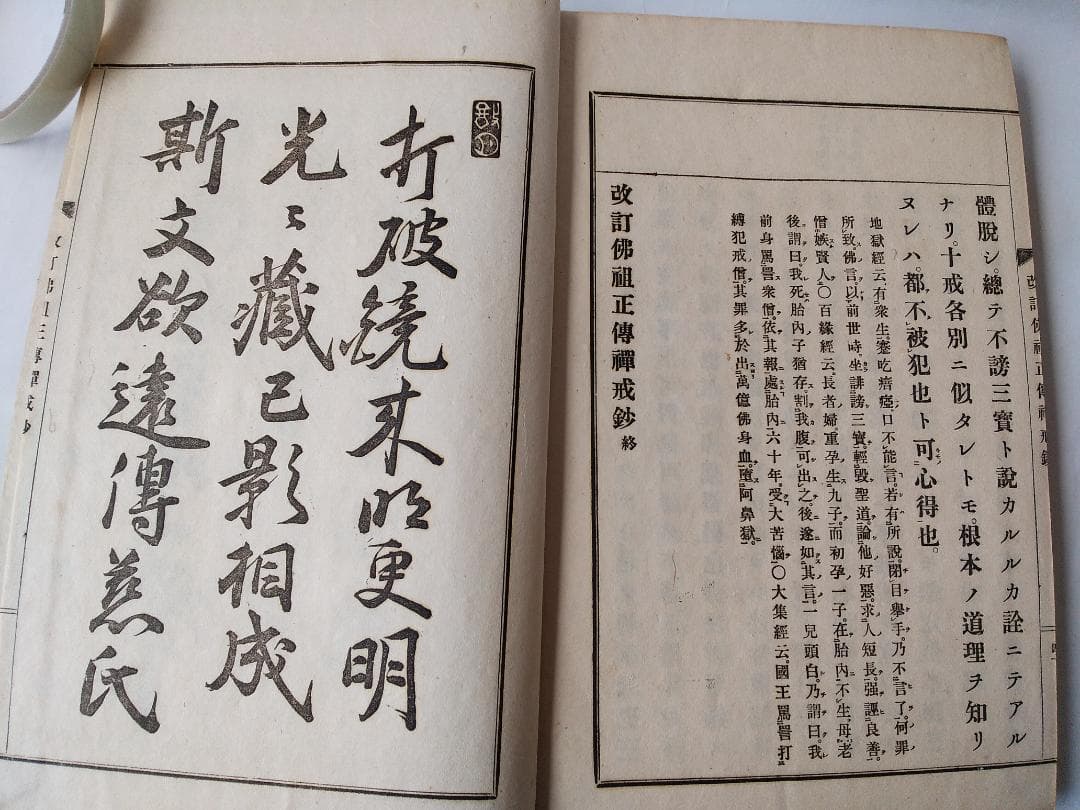 體脫シ。總テ不謗三寶ト說カルルカ詮ニテアル
ナリ。十戒各別ニ似タレトモ。根本ノ道理ヲ知リ
ヌレハ。都不被犯也ト可心得也。
地獄經云。有衆生。蹇吃瘖瘂。口不能言。若有所說。閉目擧手。乃不言了。何罪
所致。佛言。以前世時。坐誹謗三寶。輕毀聖道。論他好惡。求人短長。强誣良善。
憎嫉賢人。〇百緣經云。長者婦重孕生九子。而初孕一子。在胎內不生。母老
後謂曰。我死胎內子猶存。割我腹可出之。後遂如其言。一兒頭白。乃謂曰。我
前身罵詈衆僧。依其報處胎內六十年。受大苦惱。〇大集經云。國王罵詈打
縛犯戒僧。其罪多於出萬億佛身血。墮阿鼻獄。
改訂佛祖正傳禪戒鈔 終
改訂佛祖正傳禪戒鈔
打破鏡來吃更明
光〻藏已影相成
斯文欲遠傳慈氏
改訂佛祖正傳禪戒鈔